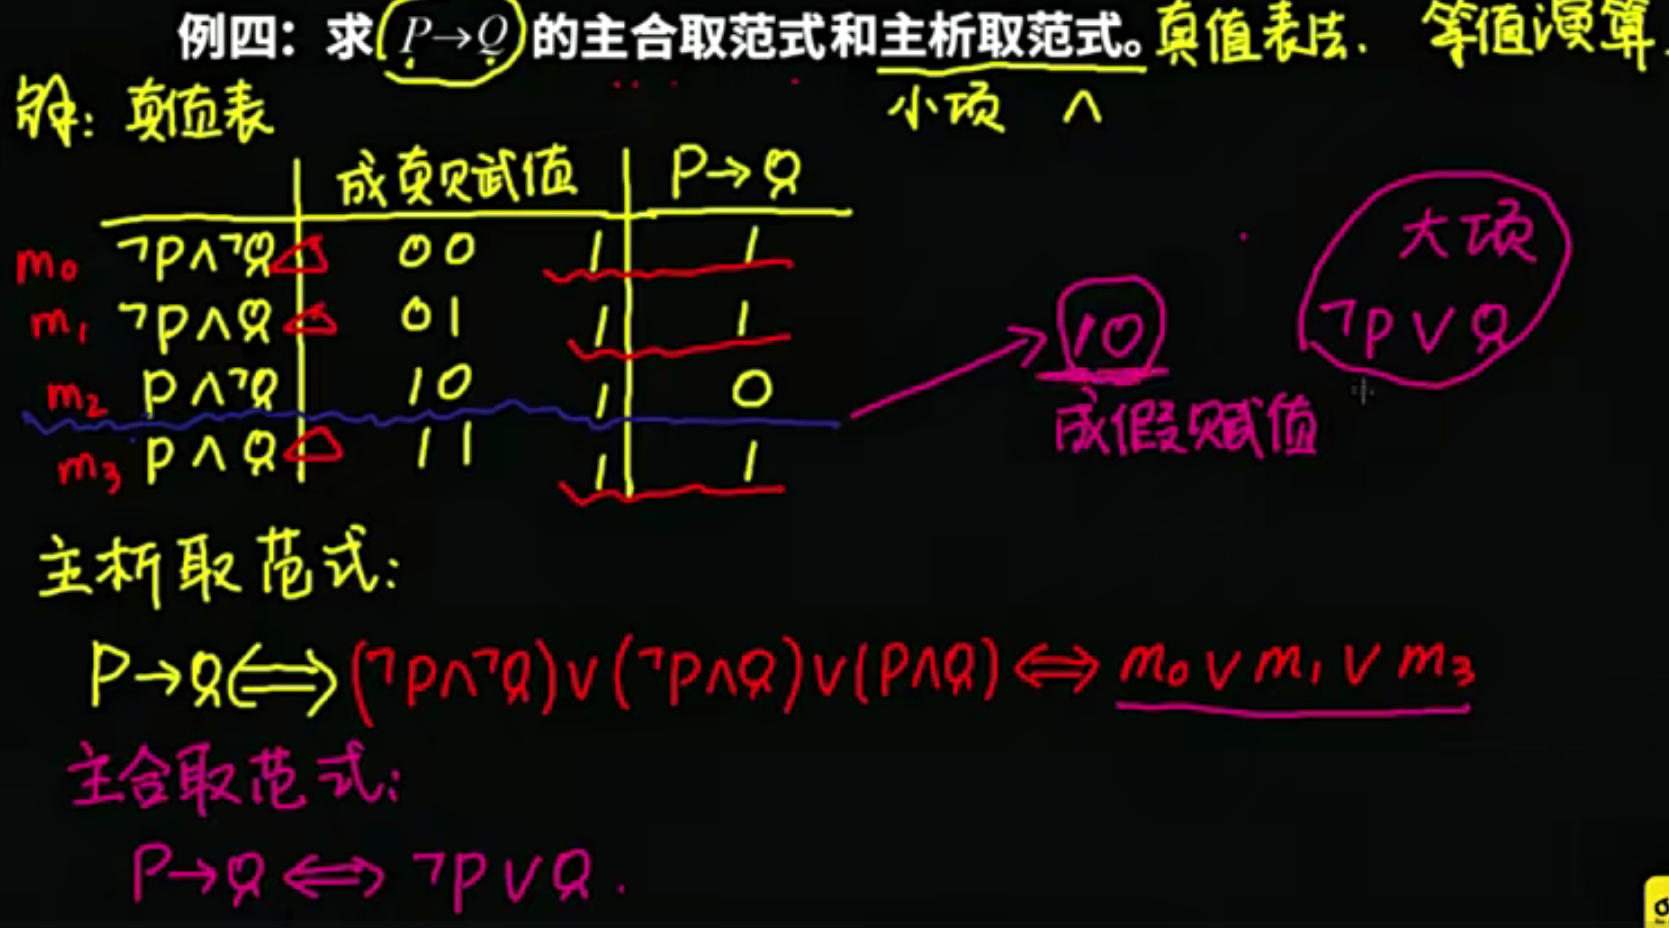 例四：求 P→Q 的主合取范式和主析取范式。真值表法. 等值演算.
解：真值表 小项 ∧
成真赋值 P→Q
m₀ ¬P∧¬Q 00 1 1
m₁ ¬P∧Q 01 1 1
m₂ P∧¬Q 10 1 0
m₃ P∧Q 11 1 1
10
成假赋值
大项
¬P∨Q
主析取范式：
P→Q⇔(¬P∧¬Q)∨(¬P∧Q)∨(P∧Q)⇔m₀∨m₁∨m₃
主合取范式：
P→Q⇔¬P∨Q.